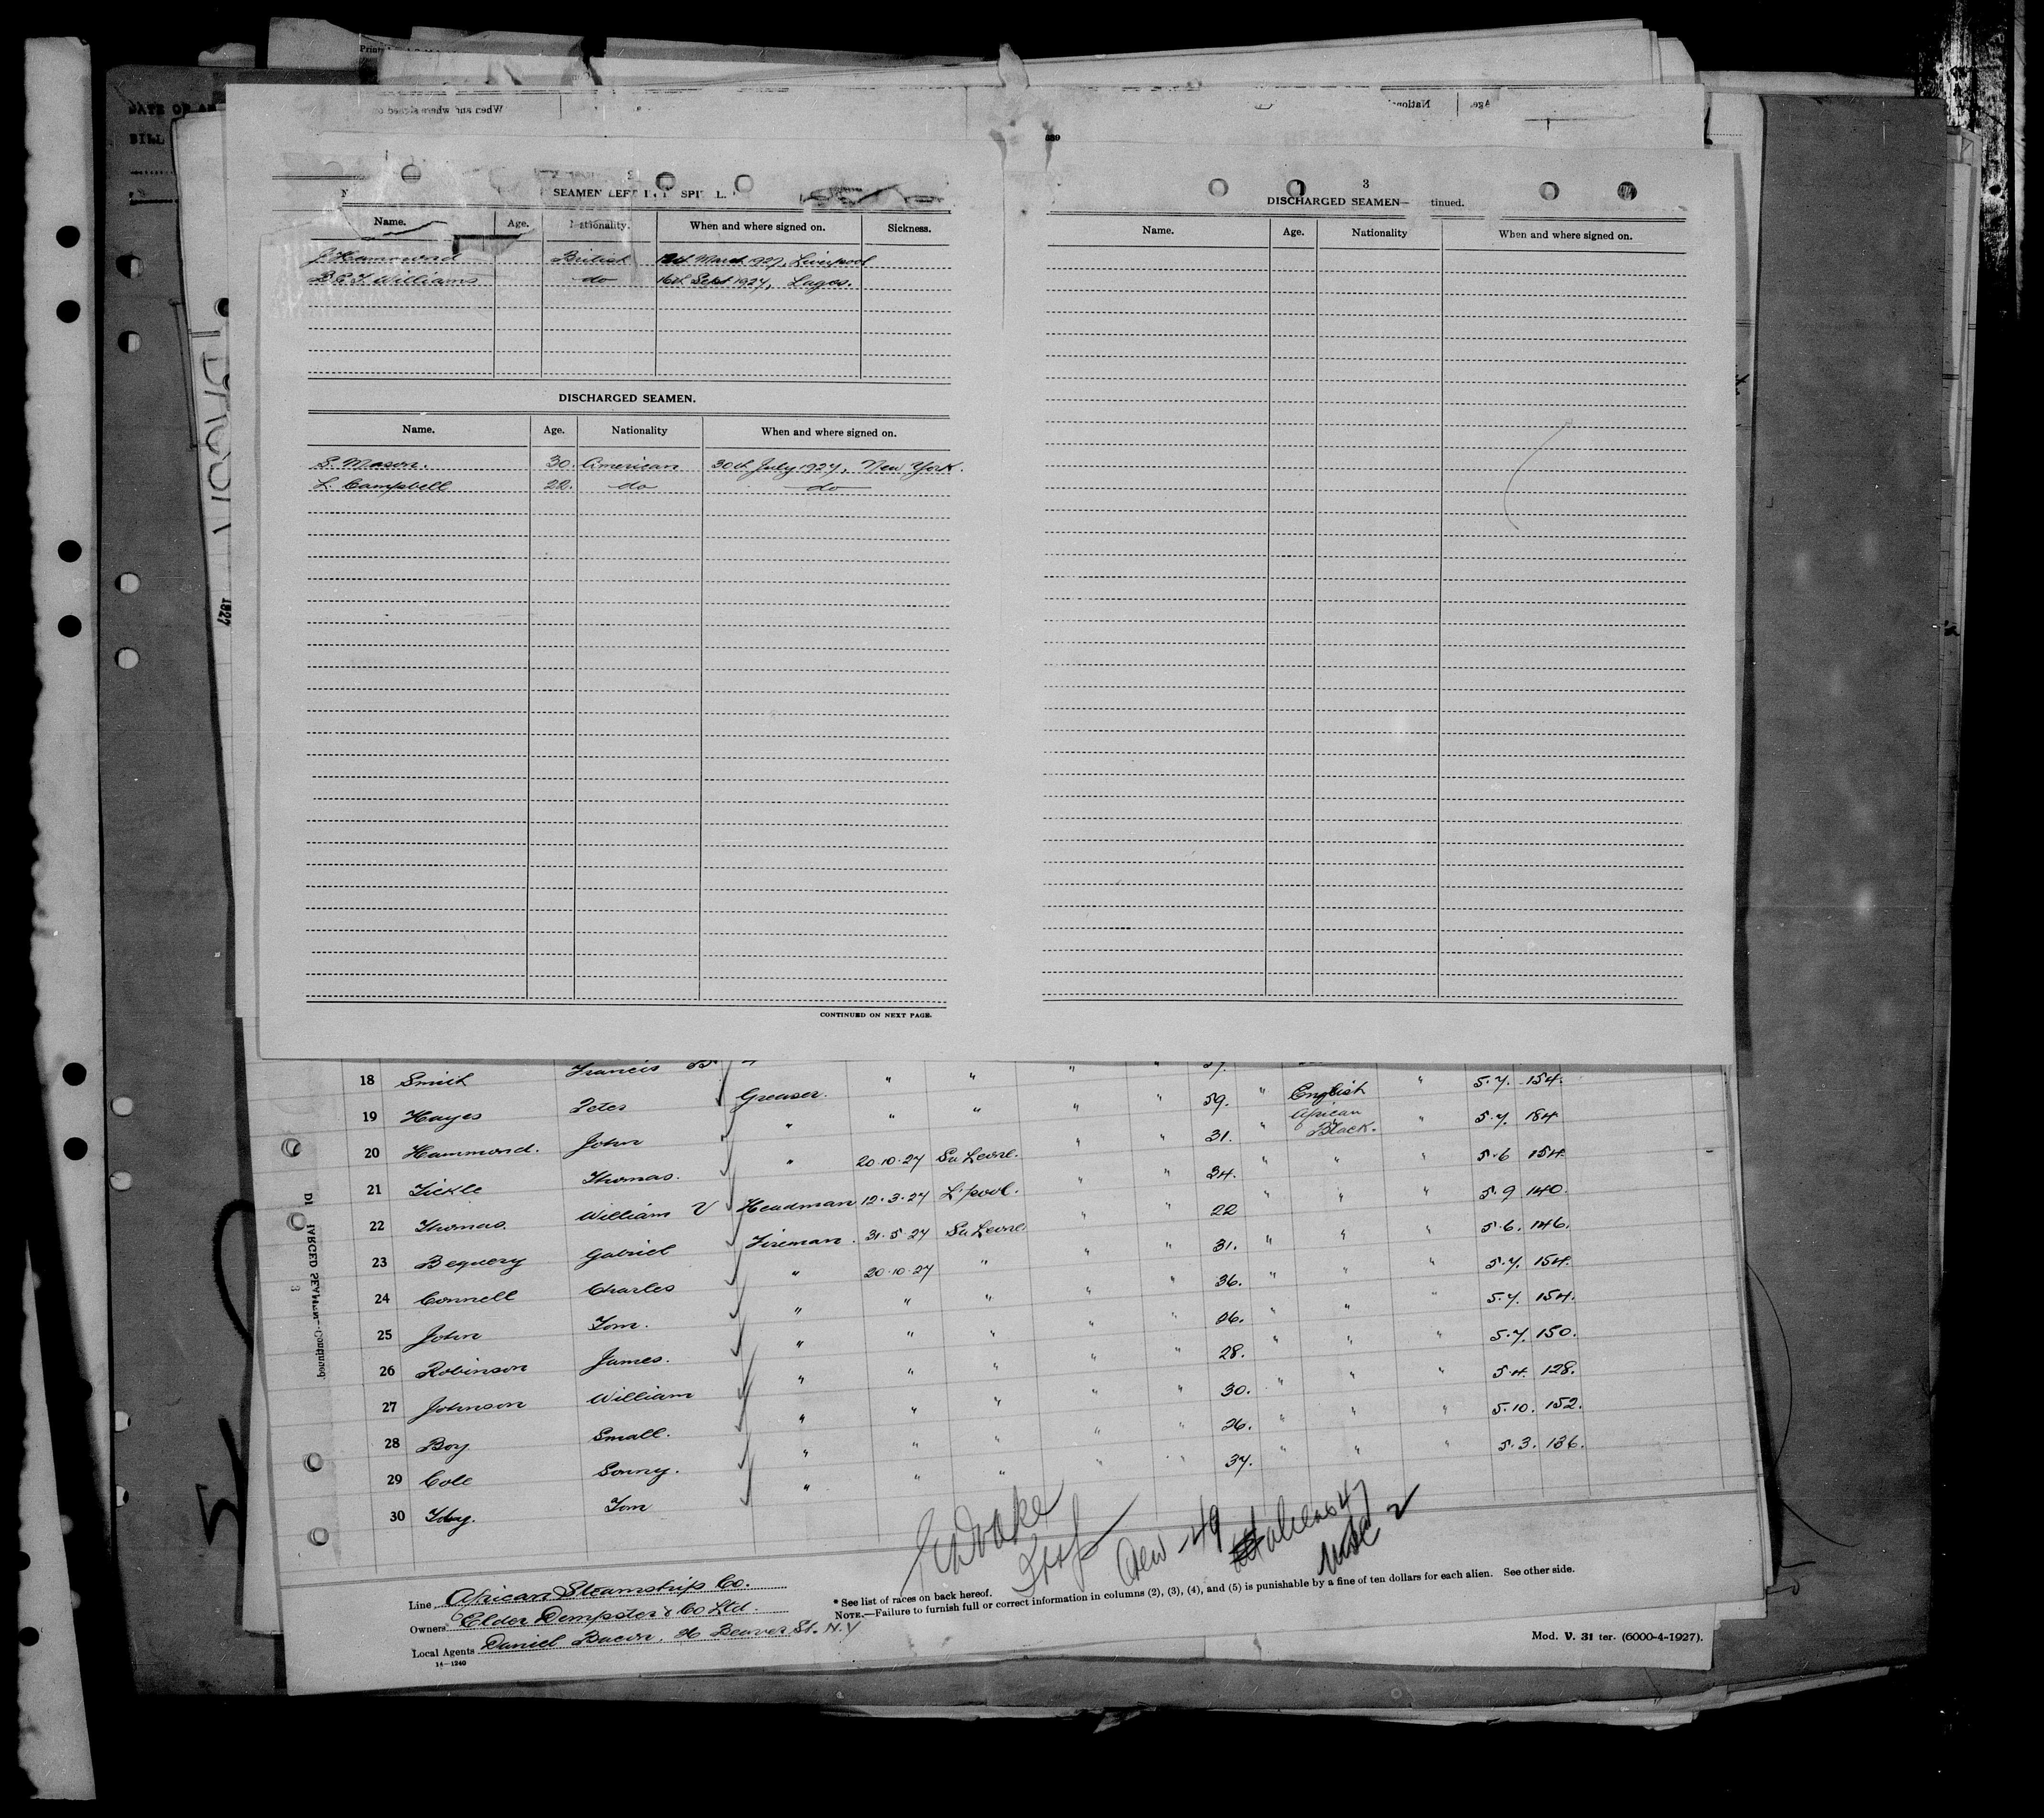 DATE OF
BILL
When and where signed on
SEAMEN LEFT
Name. Age. Nationality. When and where signed on. Sickness.
J Hammond British 12th March 1927, Liverpool
B.C.J. Williams do 16th Sept 1927, Lagos.
DISCHARGED SEAMEN.
Name. Age. Nationality When and where signed on.
S. Mason. 30. American 30th July 1927, New York.
L. Campbell 22. do do
CONTINUED ON NEXT PAGE.
3
DISCHARGED SEAMEN— tinued.
Name. Age. Nationality When and where signed on.
1927
18 Smith Francis
19 Hayes Peter Greaser. " " " " 59. " English " 5.7. 154.
20 Hammond. John " " " " " 31. " African Black. " 5.7. 184.
21 Tickle Thomas. " 20.10.27 Sa Leone. " " 34. " " " 5.6 154.
22 Thomas. William V Headman 12.3.27 L'pool. " " 22 " " " 5.9 140.
23 Bequery Gabriel Fireman. 31.5.27 Sa Leone " " 31. " " " 5.6. 146.
24 Connell Charles " 20.10.27 " " " 36. " " " 5.7. 154.
25 John Tom. " " " " " 26. " " " 5.7. 154.
26 Robinson James. " " " " " 28. " " " 5.7. 150.
27 Johnson William " " " " " 30. " " " 5.4. 128.
28 Boy Small. " " " " " 26. " " " 5.10. 152.
29 Cole Sonny. " " " " " 37. " " " 5.3. 136.
30 Toby. Tom "
Crew 49
Line African Steamship Co.
Owners Elder Dempster & Co Ltd.
Local Agents Daniel Bacon, Beaver St. N.Y
14—1240
* See list of races on back hereof.
NOTE.—Failure to furnish full or correct information in columns (2), (3), (4), and (5) is punishable by a fine of ten dollars for each alien. See other side.
Mod. V. 31 ter. (6000-4-1927).